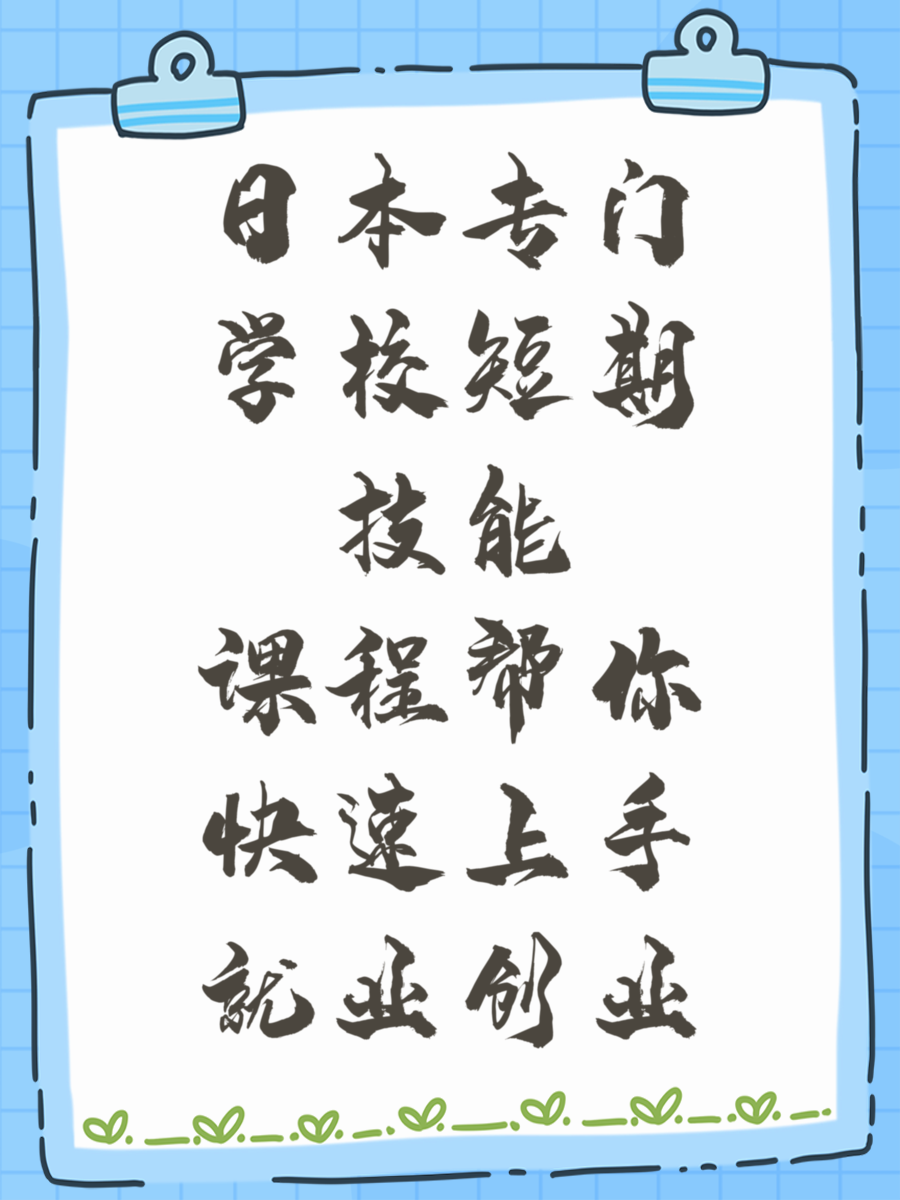 日本专门
学校短期
技能
课程帮你
快速上手
就业创业